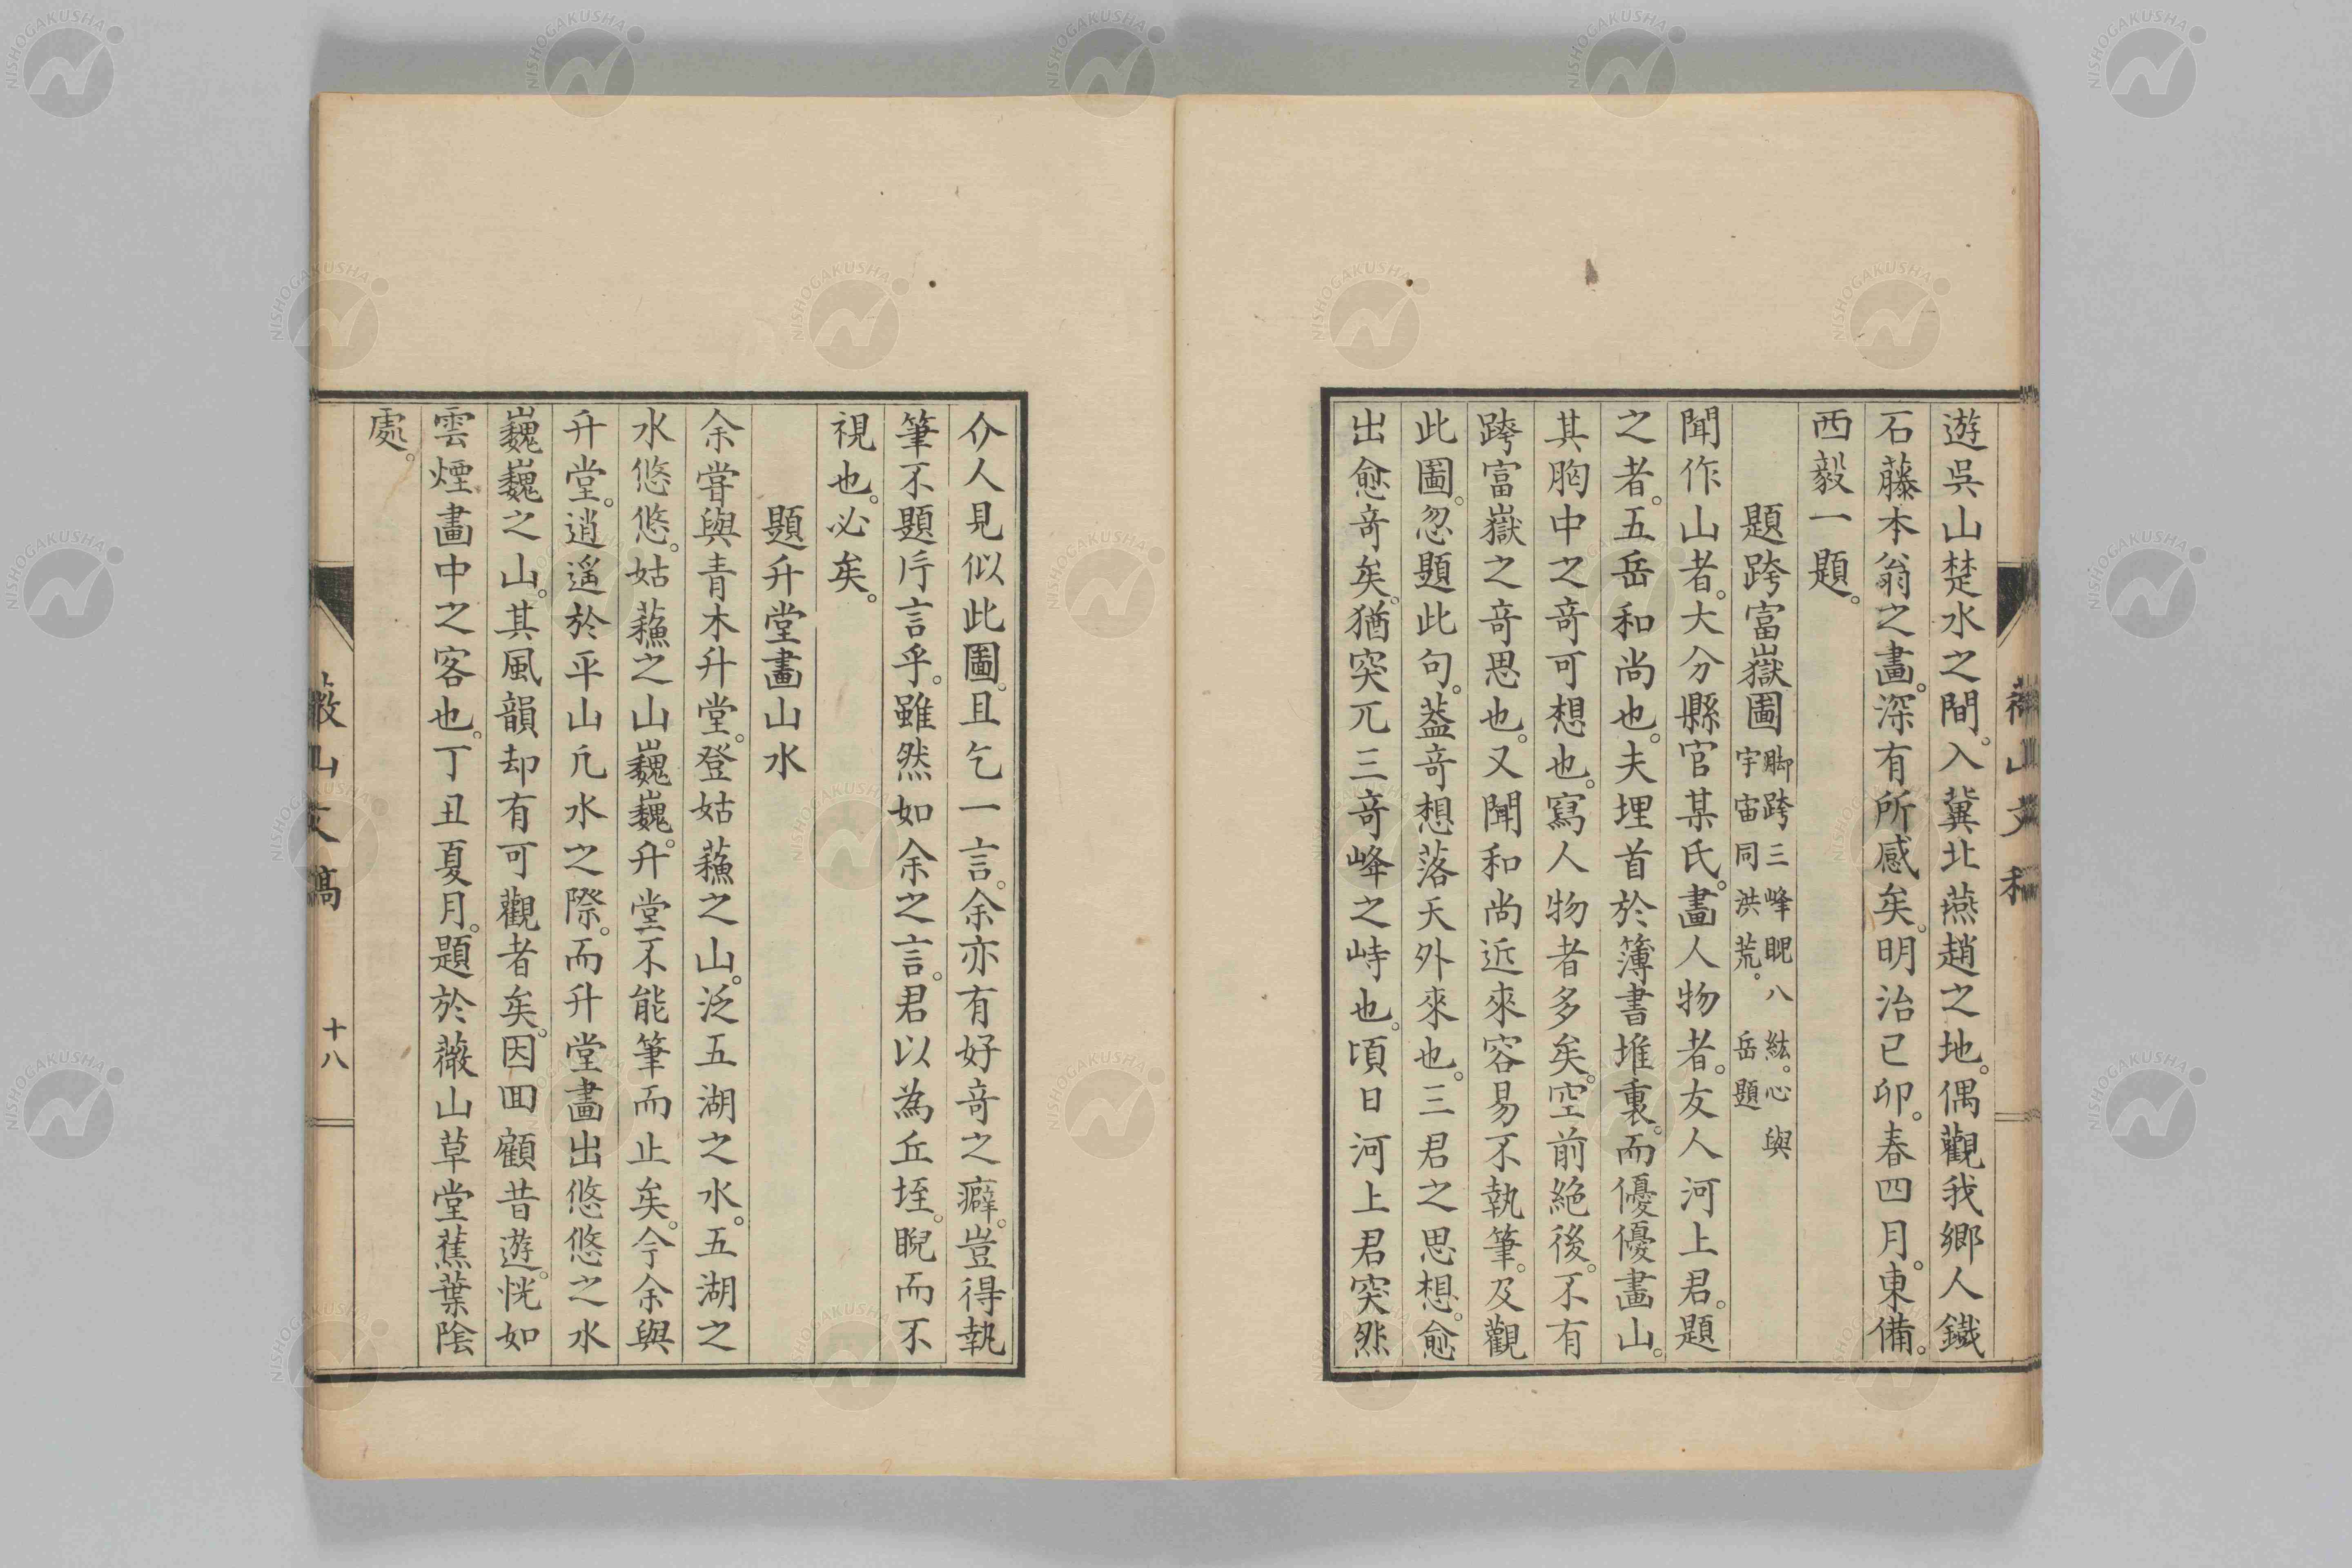 遊吳山楚水之間。入冀北燕趙之地。偶觀我鄉人鐵
石藤本翁之畫。深有所感矣。明治已卯。春四月。東備。
西毅一題。
題跨富嶽圖 脚跨三峰睨八紘。心與
宇宙同洪荒。岳題
聞作山者。大分縣官某氏。畫人物者。友人河上君。題
之者。五岳和尚也。夫埋首於簿書堆裏。而優優畫山。
其胸中之竒可想也。寫人物者多矣。空前絶後。不有
跨富嶽之竒思也。又聞和尚近來容易不執筆。及觀
此圖。忽題此句。葢竒想落天外來也。三君之思想。愈
出愈竒矣。猶突兀三竒峰之峙也。頃日河上君突然
介人見似此圖。且乞一言。余亦有好竒之癖。豈得執
筆不題片言乎。雖然如余之言。君以為丘垤。睨而不
視也。必矣。
題升堂畫山水
余甞與青木升堂。登姑蘓之山。泛五湖之水。五湖之
水悠悠。姑蘓之山巍巍。升堂不能筆而止矣。今余與
升堂。逍遥於平山凢水之際。而升堂畫出悠悠之水
巍巍之山。其風韻却有可觀者矣。因回顧昔遊。恍如
雲煙畫中之客也。丁丑夏月。題於薇山草堂蕉葉陰
處。
薇山文稿
十八
NISHOGAKUSHA